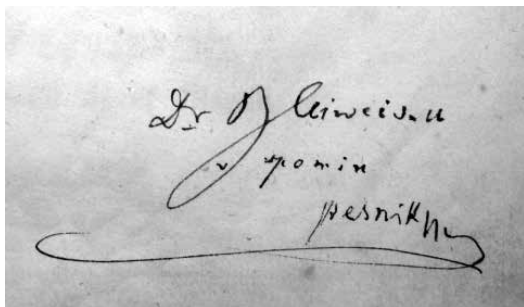 Dr Bleiweisu
v spomin
pesnik